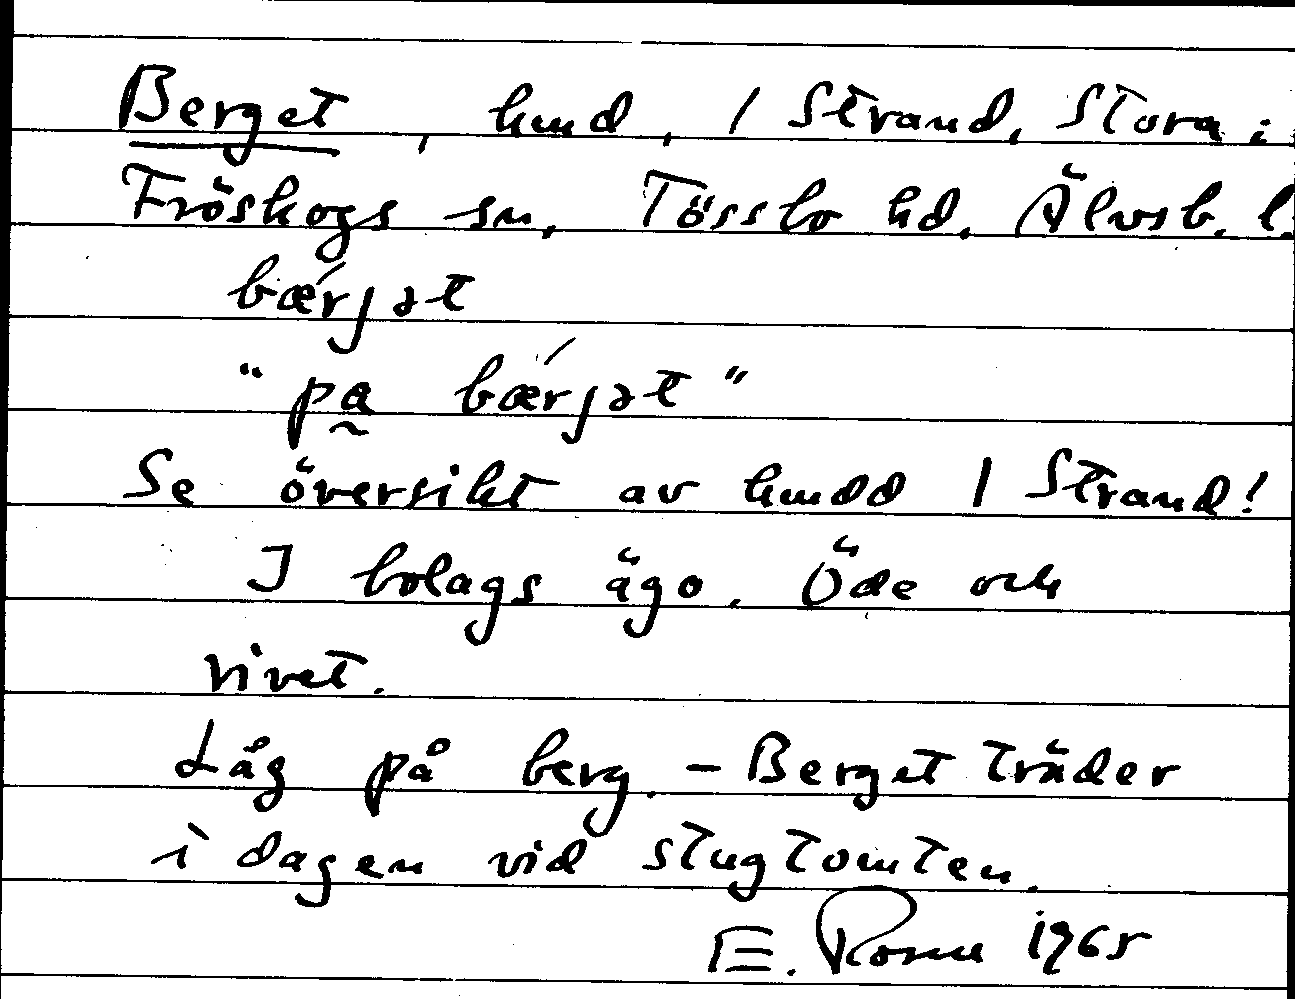 Berget, hmd, 1 Strand, Stora i
Fröskogs sn, Tössbo hd. Älvsb. l.
bǽrjət
"pa̰ bǽrjət"
Se översikt av hmdd 1 Strand!
I bolags ägo. Öde och
rivet.
Låg på berg. - Berget träder
i dagen vid stugtomten.
E. Rosm 1965